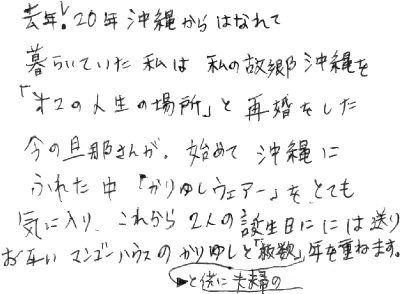 去年! 20年沖縄からはなれて
暮らいていた私は 私の故郷沖縄を
「オ2の人生の場所」と再婚をした
今の旦那さんが、始めて 沖縄に
ふれた中「かりゆしウェアー」を とても
気に入り、これから 2人の誕生日にには送り
お互い マンゴーハウスの かりゆしと「敬数」年を重ねます。
▶と供に夫婦の